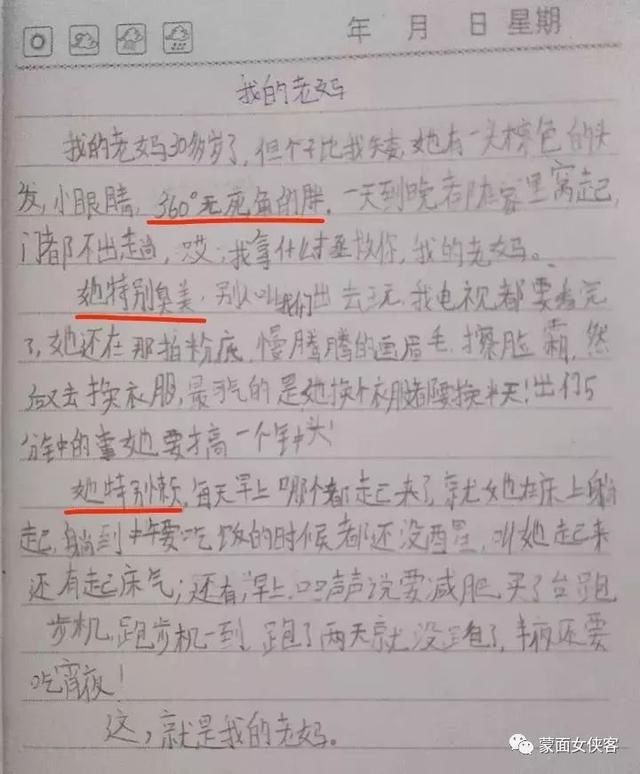 年 月 日 星期
我的老妈
我的老妈30多岁了,但个子比我矮,她有一头棕色的头
发,小眼睛,360°无死角的胖。一天到晚都在家里窝起,
门都不出趟,哎,我拿什么拯救你,我的老妈。
她特别臭美,别人叫我们出去玩,我电视都要看完
了,她还在那拍粉底,慢腾腾的画眉毛,擦脸霜,然
后又去换衣服,最气的是她换个衣服都要换半天!出门5
分钟的事她要搞一个钟头!
她特别懒,每天早上哪个都起来了,就她在床上躺
起,躺到中午要吃饭的时候都还没醒,叫她起来
还有起床气;还有,早上口口声声说要减肥,买了台跑
步机,跑步机一到,跑了两天就没跑了,半夜还要
吃宵夜!
这,就是我的老妈。
蒙面女侠客